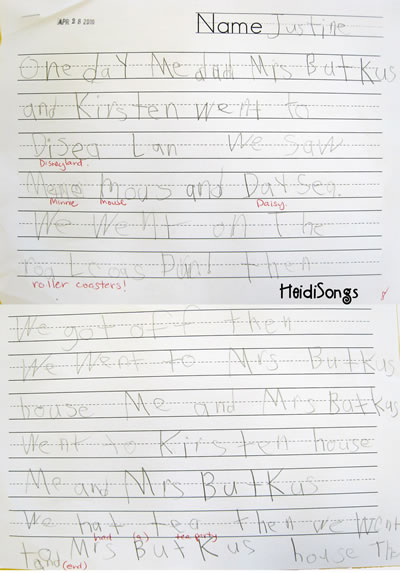 APR 28 2010
Name Justine
One day Me and Mrs Butkus
and Kirsten went to
Disea Lan We saw
Disneyland.
Mene mous and Daysea.
Minnie mouse Daisy.
We went on The
then
roller coasters!
HeidiSongs
We got off then
We went to Mrs Butkus
house Me and Mrs Butkus
went to Kirsten house
Me and Mrs Butkus
We hat tea then we went
had (a) tea party
Mrs Butkus house The
(end)